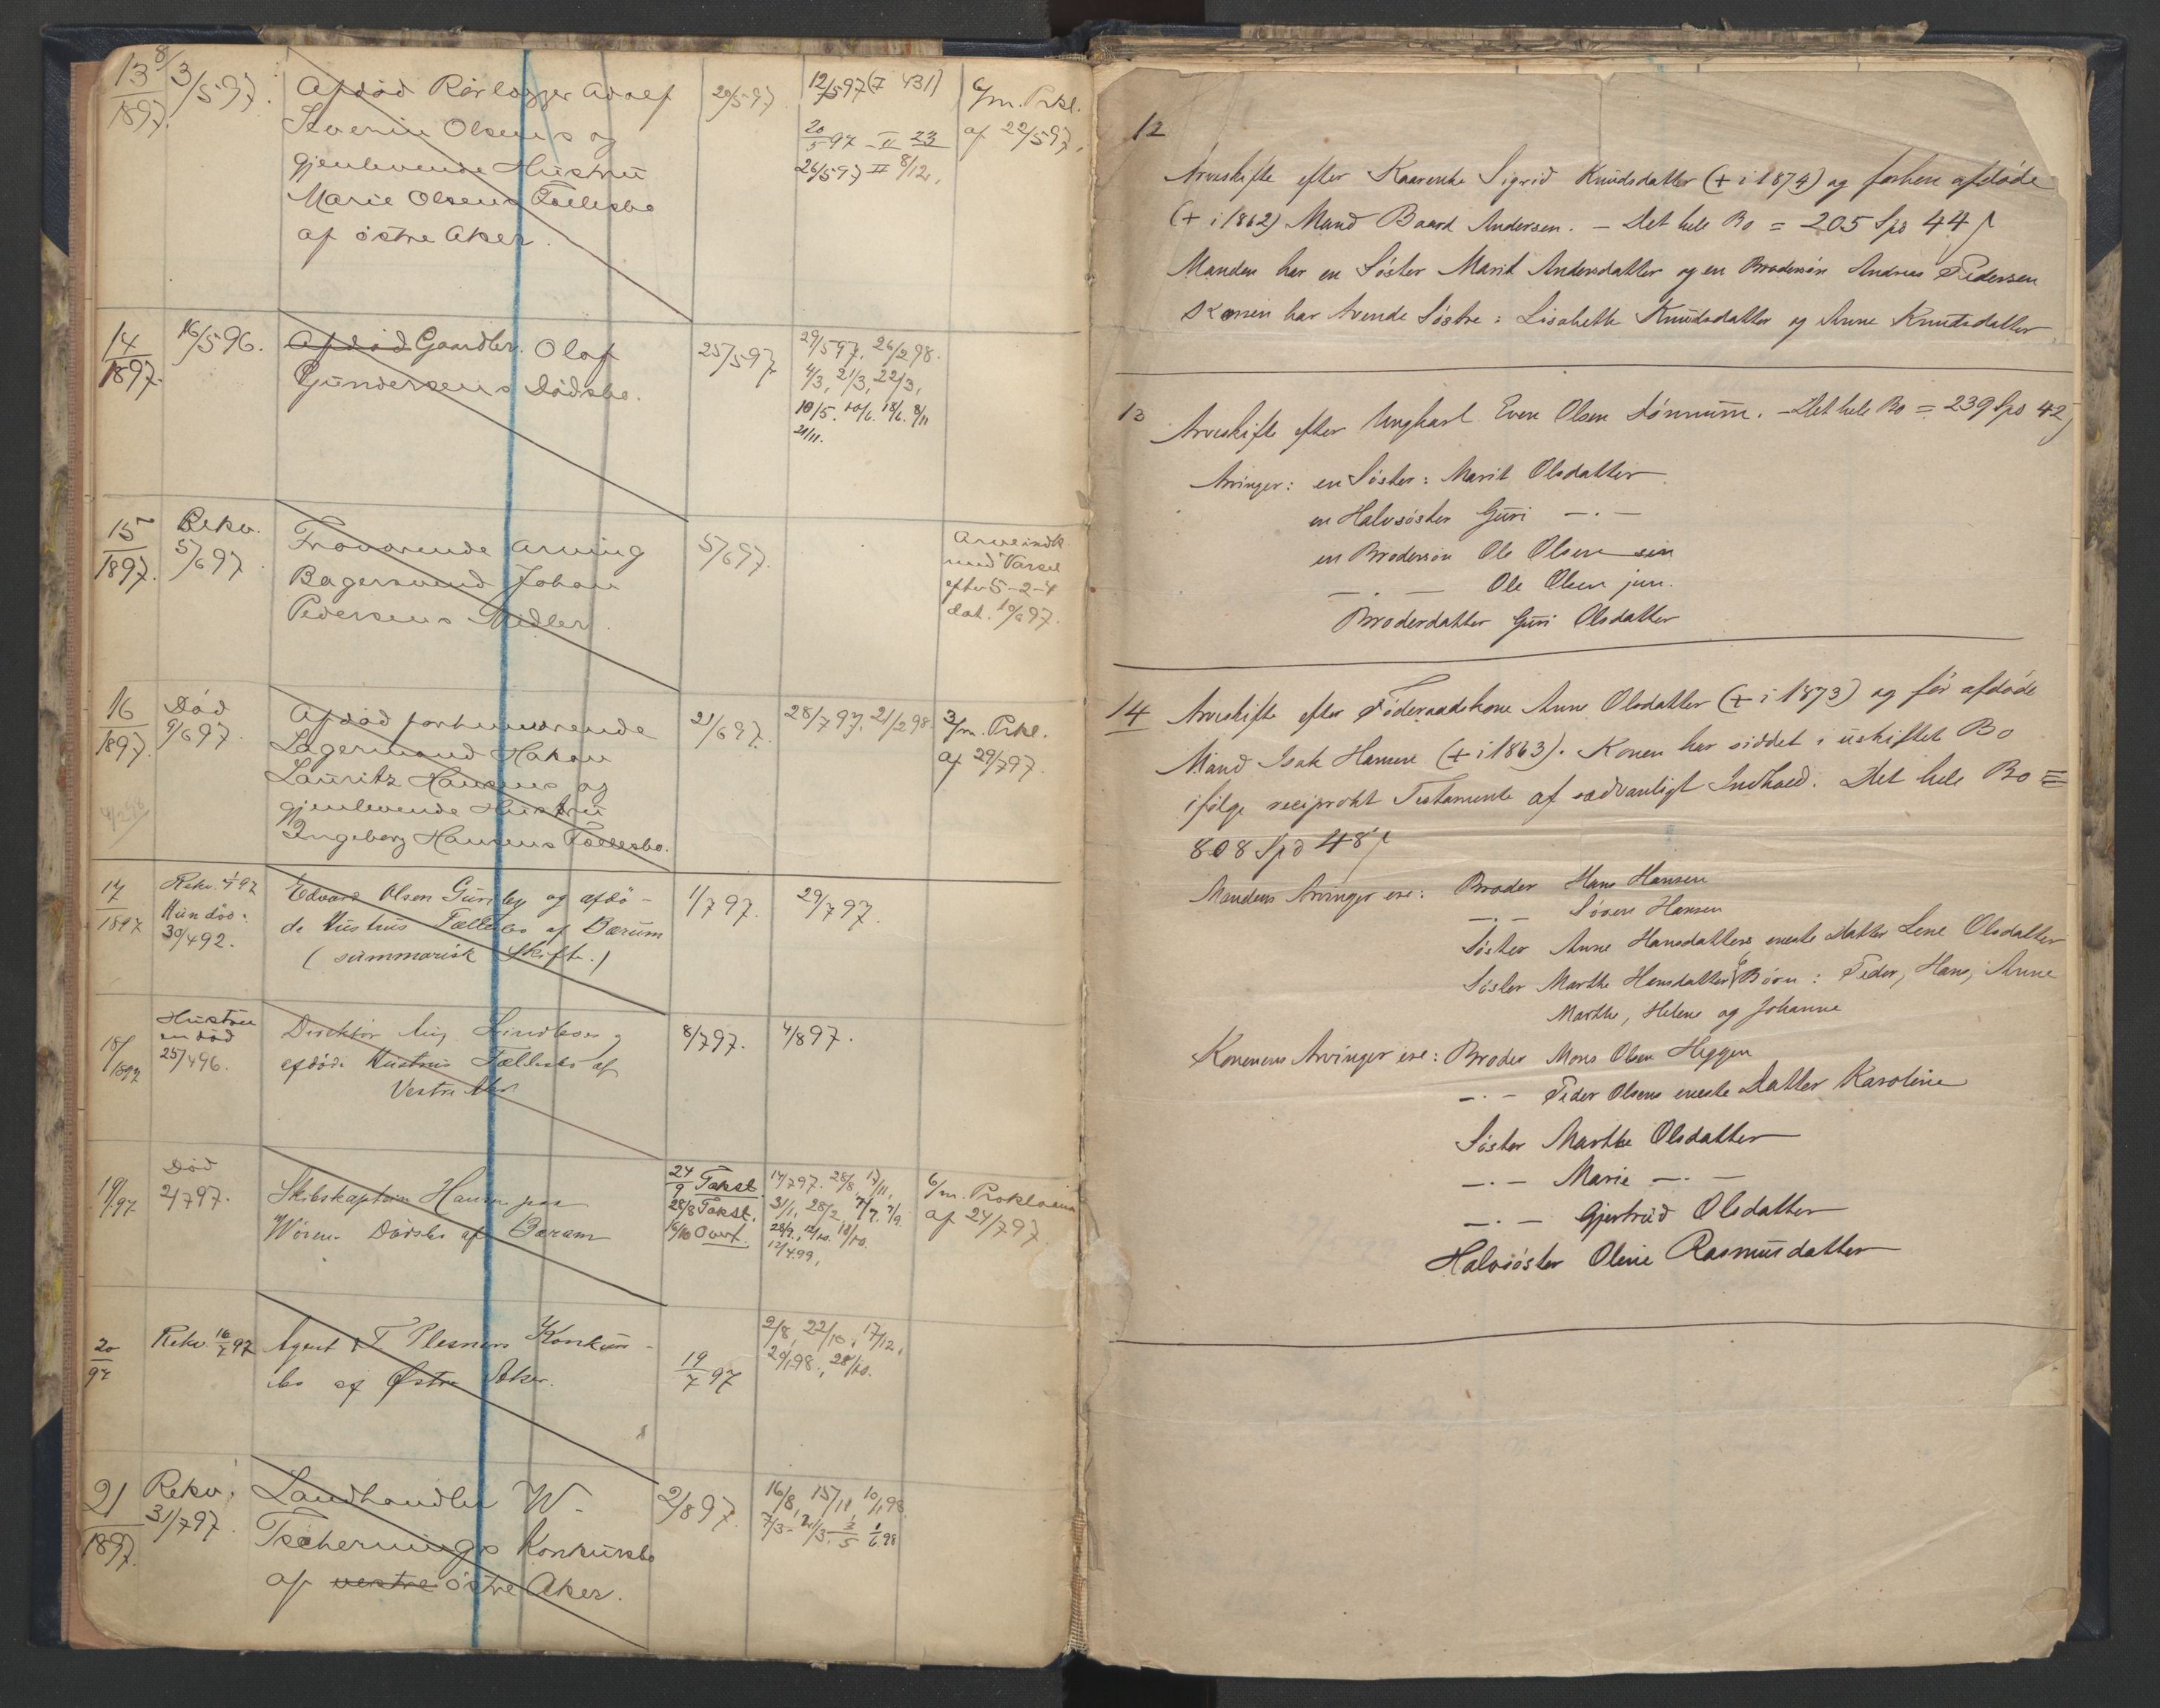 13/1897. 8/3/5 97. Afdød Rørlægger Adolf 29/5 97. 12/5 97 (I 431) 6/m. Prkl.
Severin Olsens og 20/5 97 - II 23 af 22/5 97.
gjenlevende Hustru 26/5 97 II 8/12.
Marie Olsens Fællesbo
af østre Aker.
14/1897. 16/5 96. Afdød Gaardbr. Olaf 25/5 97. 29/5 97, 26/2 98.
Gundersens Dødsbo. 4/3, 21/3, 22/3,
10/5. 10/6. 18/6. 8/11
21/11.
15/1897. Rekv. Fraværende Arving 5/6 97. Arveindk
5/6 97 Bagersvend Johan med Varsel
Pedersens Midler. efter 5-2-4
dat. 10/6 97.
16/1897. Død Afdød forhenværende 21/6 97. 28/7 97, 21/2 98. 3/m. Prkl.
9/6 97. Lagermand Hakon af 29/7 97.
Lauritz Hansens og
gjenlevende Hustru
Ingeborg Hansens Fællesbo.
17/1897 Rekv. 1/7 97 Edvard Olsen Gursby og afdø- 1/7 97. 29/7 97.
Hun død: de Hustrus Fællesbo af Bærum
30/4 92. (summarisk Skifte.)
18/1897 Hustruen død Direktør Aug Lindboes og 8/7 97. 4/8 97.
25/4 96. afdøde Hustrus Fællesbo af
Vestre Aker
19/97 Død Skibskaptein Hansen paa 24/9 Takst. 14/7 97. 28/8, 17/11, 6/m. Proklama
2/7 97. Dødsbo af Bærum 28/8 Takst. 31/1, 28/2, af 24/7 97.
16/10 Overt.
12/4 99,
20/97 Rekv. 16/7 97 Agent T Plesners Konkurs- 19/7 97 2/8, 22/10, 17/12,
bo af Østre Aker. 28/10.
21/1897. Rekv. Landhandler W. 2/8 97. 16/8, 15/11, 10/1 98
31/7 97. Tschernings Konkursbo 7/3
af vestre østre Aker.
12
Arveskifte efter Kaarenke Sigrid Knudsdatter (+ i 1874) og forhen afdøde
(+ i 1862) Mand Baard Andersen. - Det hele Bo = 205 Spd 44 ſ
Manden har en Søster Marit Andersdatter og en Brodersøn Andreas Pedersen
Konen har tvende Søstre: Lisabeth Knudsdatter og Anne Knudsdatter
13 Arveskifte efter Ungkarl Even Olsen Tønnum. - Det hele Bo = 239 Spd 42 ſ
Arvinger: en Søster: Marit Olsdatter
en Halvsøster Guri -.-
en Brodersøn Ole Olsen sen
-.- Ole Olsen jun.
Broderdatter Guri Olsdatter
14 Arveskifte efter Føderaadskone Anne Olsdatter (+ i 1873) og før afdøde
Mand Isak Hansen (+ i 1863). Konen har siddet i uskiftet Bo
ifølge reciprokt Testamente af sædvanligt Indhold. Det hele Bo =
808 Spd 48 ſ
Mandens Arvinger ere: Broder Hans Hansen
-.- Søren Hansen
Søster Anne Hansdatters eneste Datter Lene Olsdatter
Søster Marthe Hansdatters Børn: Peder, Hans, Anne
Marthe, Helene og Johanne
Konenens Arvinger ere: Broder Mons Olsen Heggen
-.- Peder Olsens eneste Datter Karoline
Søster Marthe Olsdatter
-.- Marie -.-
-.- Gjertrud Olsdatter
Halvsøster Oline Rasmusdatter